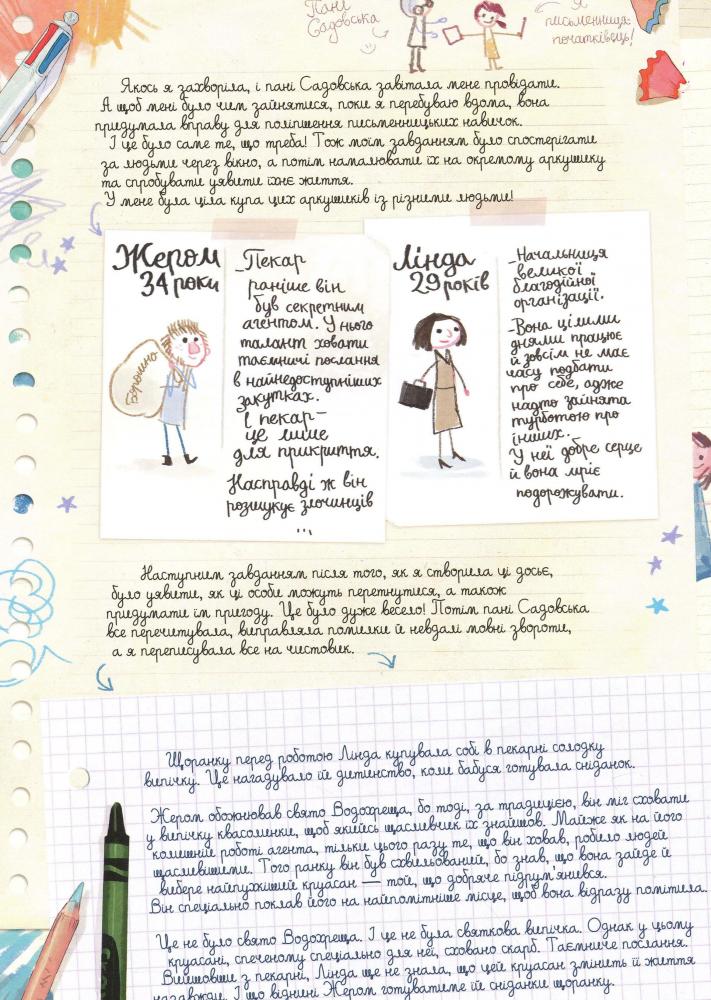 Пані
Садовська
Я
письменниця-
початківець!
Якось я захворіла, і пані Садовська завітала мене провідати.
А щоб мені було чим зайнятися, поки я перебуваю вдома, вона
придумала вправу для поліпшення письменницьких навичок.
І це було саме те, що треба! Тож моїм завданням було спостерігати
за людьми через вікно, а потім намалювати їх на окремому аркушику
та спробувати уявити їхнє життя.
У мене була ціла купа цих аркушиків із різними людьми!
Жером
34 роки
Борошно
_Пекар
раніше він
був секретним
агентом. У нього
талант ховати
таємничі послання
в найнедоступніших
закутках.
І пекар —
це лише
для прикриття.
Насправді ж він
розшукує злочинців
...
Лінда
29 років
_Начальниця
великої
благодійної
організації.
_Вона цілими
днями працює
й зовсім не має
часу подбати
про себе, адже
надто зайнята
турботою про
інших.
У неї добре серце
й вона мріє
подорожувати.
Наступним завданням після того, як я створила ці досьє,
було уявити, як ці особи можуть перетнутися, а також
придумати їм пригоду. Це було дуже весело! Потім пані Садовська
все перечитувала, виправляла помилки й невдалі мовні звороти,
а я переписувала все на чистовик.
Щоранку перед роботою Лінда купувала собі в пекарні солодку
випічку. Це нагадувало їй дитинство, коли бабуся готувала сніданок.
Жером обожнював свято Водохреща, бо тоді, за традицією, він міг сховати
у випічку квасолинки, щоб якийсь щасливчик їх знайшов. Майже як на його
колишній роботі агента, тільки цього разу те, що він ховав, робило людей
щасливішими. Того ранку він був схвильований, бо знав, що вона зайде й
вибере найпухкіший круасан — той, що добряче підрум'янився.
Він спеціально поклав його на найпомітніше місце, щоб вона відразу помітила.
Це не було свято Водохреща. І це не була святкова випічка. Однак у цьому
круасані, спеченому спеціально для неї, сховано скарб. Таємниче послання.
Вийшовши з пекарні, Лінда ще не знала, що цей круасан змінить її життя
назавжди. І що віднині Жером готуватиме їй сніданки щоранку.